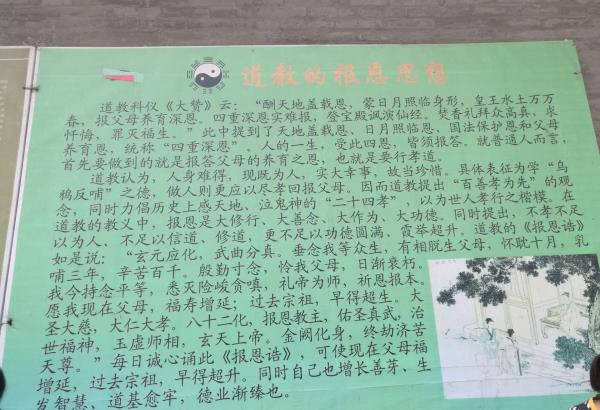 道教的报恩思想
道教科仪《大赞》云：“酬天地盖载恩，蒙日月照临身形，皇王水土万万
春，报父母养育深恩。四重深恩实难报，登宝殿讽演仙经。焚香礼拜众高真，求
忏悔，罪灭福生。”此中提到了天地盖载恩、日月照临恩、国法保护恩和父母
养育恩，统称“四重深恩”。人的一生，受此四恩，皆须报答。就普通人而言，
首先要做到的就是报答父母的养育之恩，也就是要行孝道。
道教认为，人身难得，现既为人，实大幸事，故当珍惜。具体表征为学“乌
鸦反哺”之德，做人则更应以尽孝回报父母。因而道教提出“百善孝为先”的观
念，同时力倡历史上感天地、泣鬼神的“二十四孝”，以为世人孝行之楷模。在
道教的教义中，报恩是大修行、大善念、大作为、大功德。同时提出，不孝不足
以为人、不足以信道、修道，更不足以功德圆满，霞举超升。道教的《报恩诰》
如是说：“玄元应化，武曲分真。垂念我等众生，有相脱生父母，怀耽十月，乳
哺三年，辛苦百千。殷勤寸念，怜我父母，日渐衰朽。
我今持念平等，悉灭险峻贪嗔，礼帝为师，祈恩报本。
愿我现在父母，福寿增延；过去宗祖，早得超生。大
圣大慈，大仁大孝。八十二化，报恩教主，佑圣真武，治
世福神，玉虚师相，玄天上帝。金阙化身，终劫济苦
天尊。”每日诚心诵此《报恩诰》，可使现在父母福
增延，过去宗祖，早得超升。同时自己也增长善芽、生
发智慧、道基愈牢，德业渐臻也。